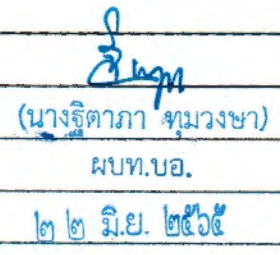 (นางฐิตาภา ทุมวงษา)
ผบท.บอ.
๒ ๒ มิ.ย. ๒๕๖๕